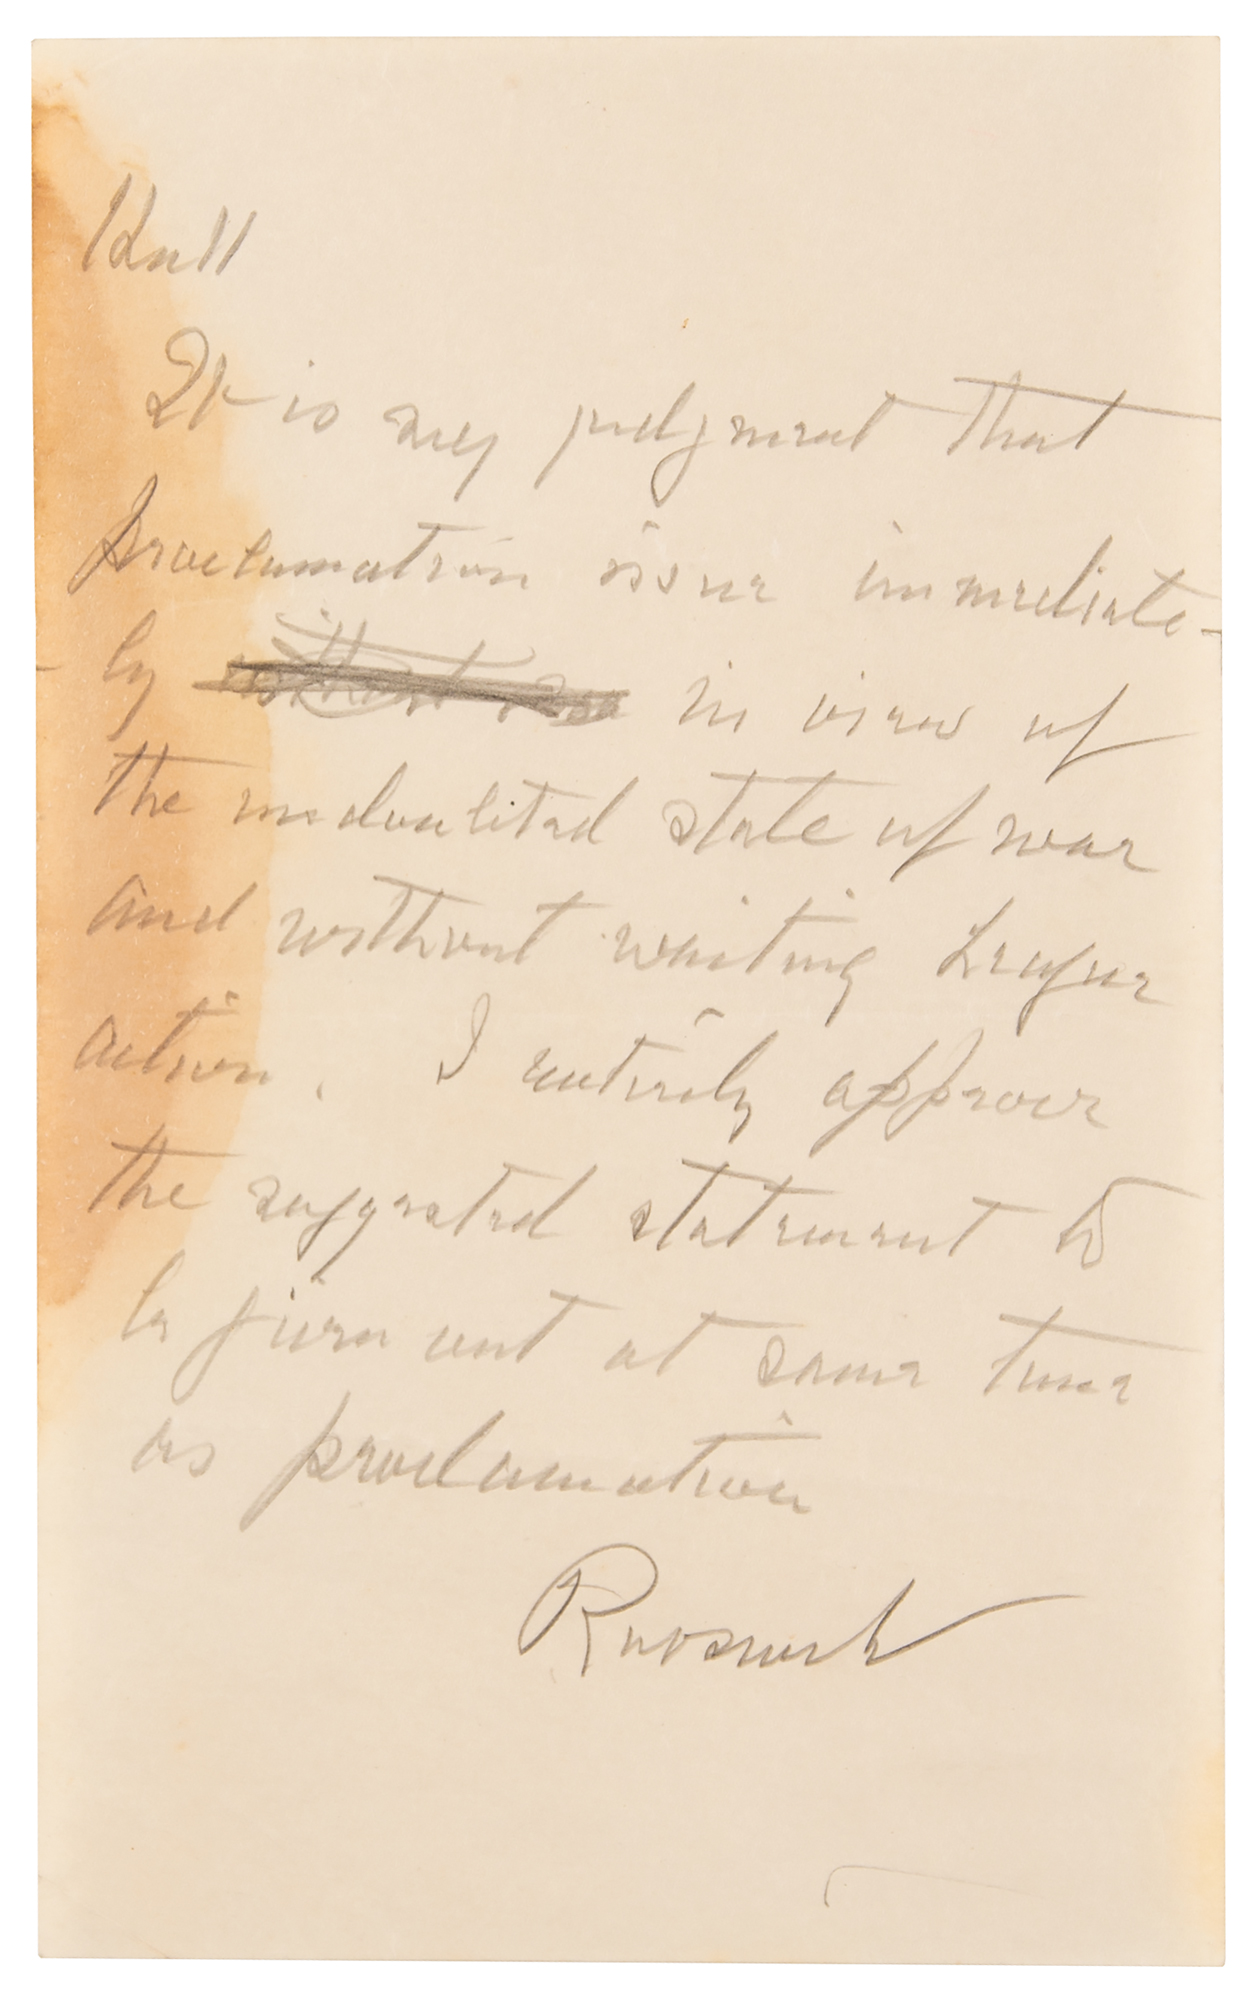 Hull
It is my judgment that
proclamation issue immediate-
ly in view of
the undoubted state of war
and without waiting League
action. I entirely approve
the suggested statement to
be given out at same time
as proclamation
Roosevelt